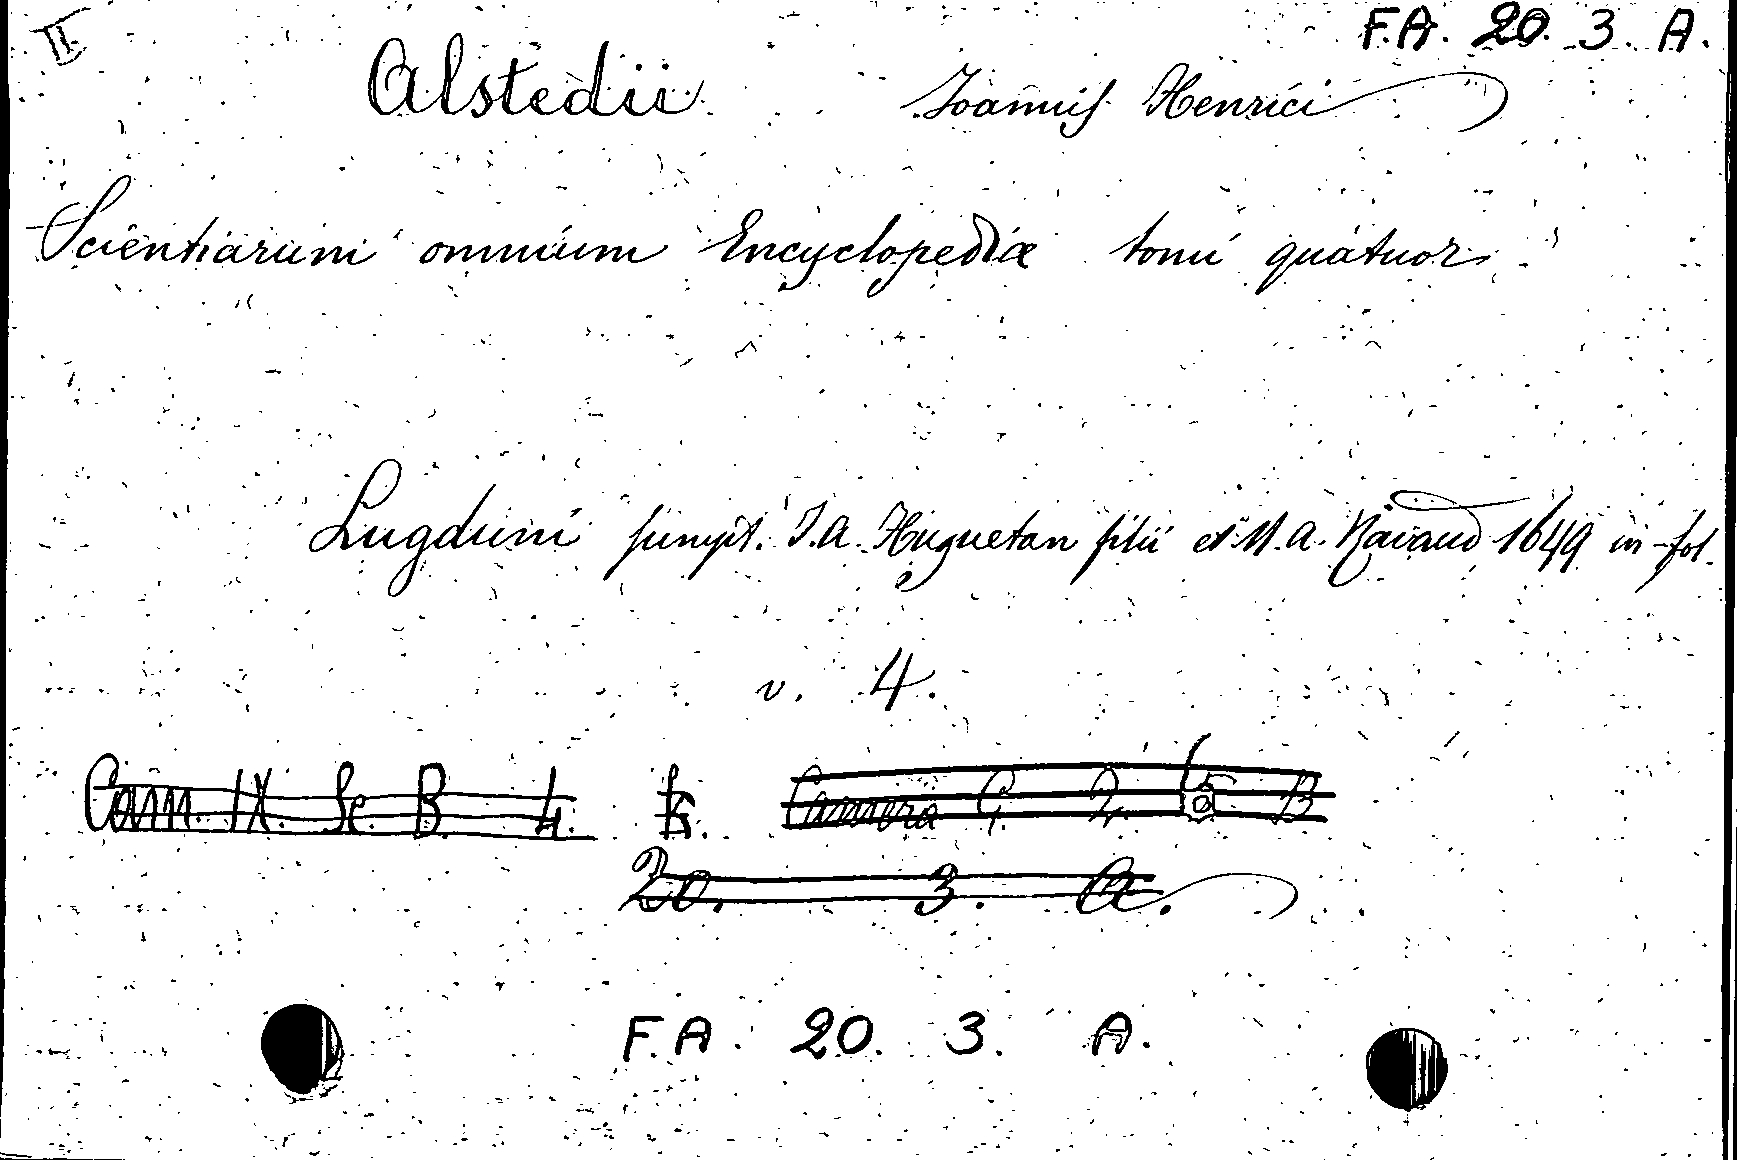 II
F.A. 20. 3. A.
Alstedii Joannis Henrici
Scientiarum omnium Encyclopediæ tomi quatuor.
Lugduni sumpt. J.A. Huguetan filii et M.A. Ravaud 1649 in-fol.
v. 4.
Cam. IX. Sc. B. 4. Camera 9. 2. B
20. 3. A.
F.A. 20. 3. A.